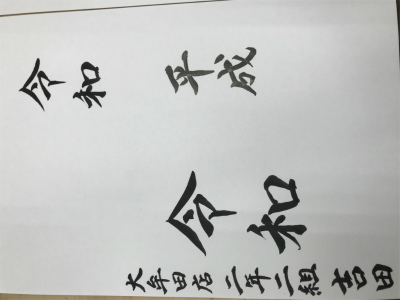 令和
平成
令和
大牟田店 二年二組 吉田